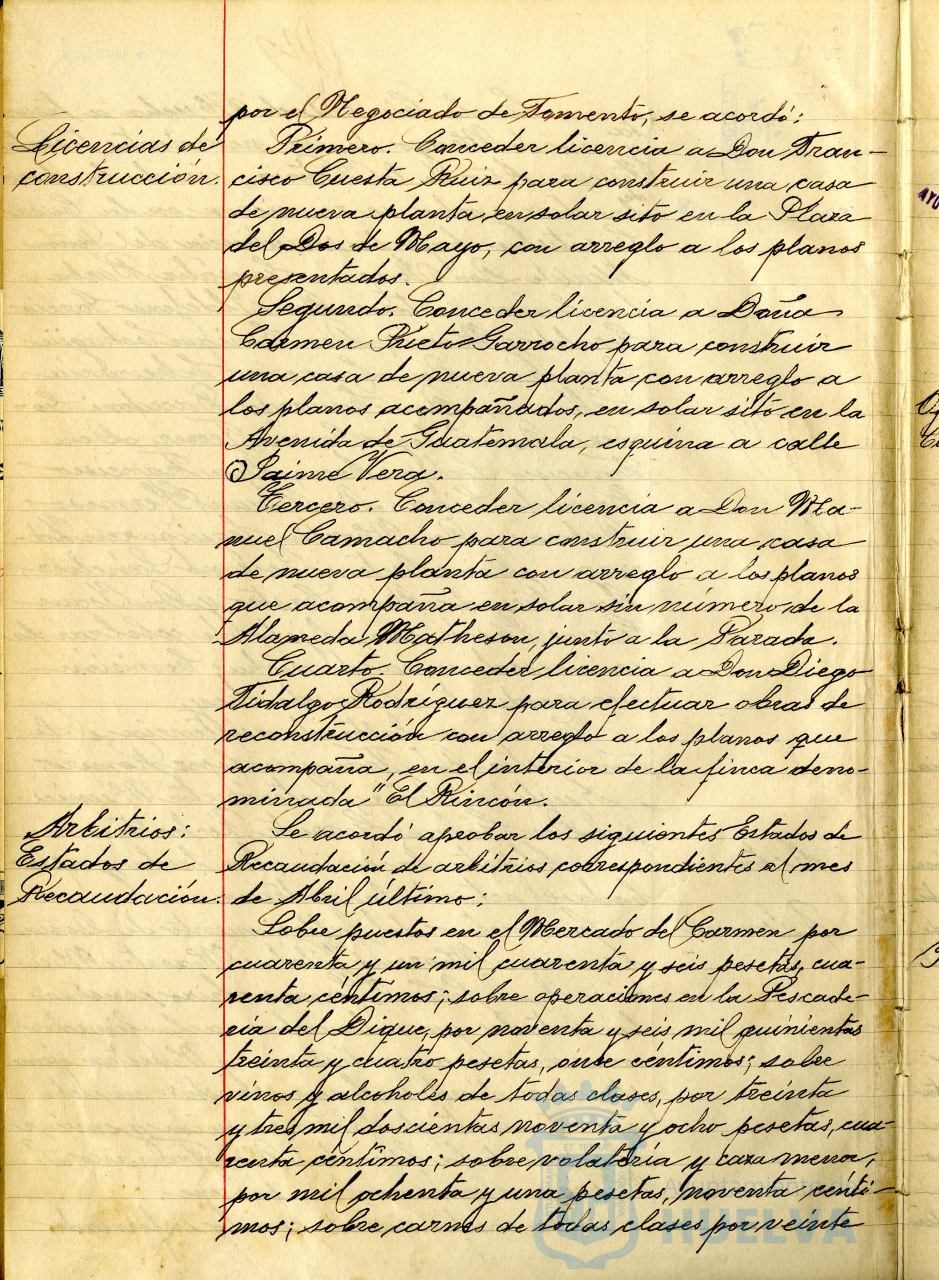 por el Negociado de Fomento, se acordó:
Licencias de
construcción.
Primero. Conceder licencia a Don Fran-
cisco Cuesta Ruiz para construir una casa
de nueva planta, en solar sito en la Plaza
del Dos de Mayo, con arreglo a los planos
presentados.
Segundo. Conceder licencia a Doña
Carmen Prieto Garrocho para construir
una casa de nueva planta con arreglo a
los planos acompañados, en solar sito en la
Avenida de Guatemala, esquina a calle
Jaime Vera.
Tercero. Conceder licencia a Don Ma-
nuel Camacho para construir una casa
de nueva planta con arreglo a los planos
que acompaña en solar sin número de la
Alameda Matheson, junto a la Parada.
Cuarto. Conceder licencia a Don Diego
Fidalgo Rodríguez para efectuar obras de
reconstrucción con arreglo a los planos que
acompaña, en el interior de la finca deno-
minada "El Rincón.
Arbitrios:
Estados de
Recaudación.
Se acordó aprobar los siguientes Estados de
Recaudación de arbitrios correspondientes al mes
de Abril último:
Sobre puestos en el Mercado del Carmen por
cuarenta y un mil cuarenta y seis pesetas, cua-
renta céntimos; sobre operaciones en la Pescade-
ría del Dique, por noventa y seis mil quinientas
treinta y cuatro pesetas, once céntimos; sobre
vinos y alcoholes de todas clases, por treinta
y tres mil doscientas noventa y ocho pesetas, cua-
renta céntimos; sobre volatería y caza menor,
por mil ochenta y una pesetas, noventa cénti-
mos; sobre carnes de todas clases por veinte
HUELVA